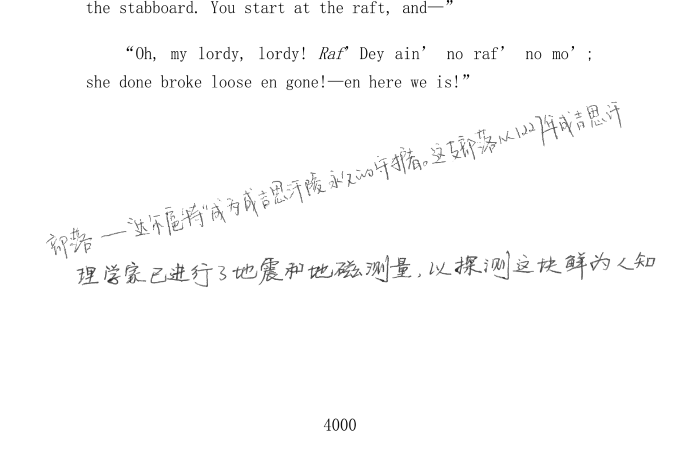 the stabboard. You start at the raft, and—”
“Oh, my lordy, lordy! Raf’ Dey ain’ no raf’ no mo’;
she done broke loose en gone!—en here we is!”
部落——达尔扈特“成为成吉思汗陵永久的守护者。这支部落从1227年成吉思汗
理学家已进行了地震和地磁测量，以探测这块鲜为人知
4000